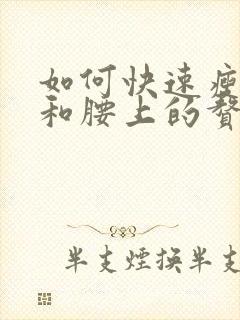 如何快速瘦
和腰上的赘
半支煙换半支